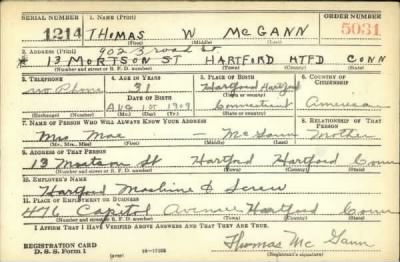 SERIAL NUMBER 1. NAME (Print) ORDER NUMBER
1214 THOMAS W MCGANN 5031
(First) (Middle) (Last)
902 Broad St
2. ADDRESS (Print)
* 13 MORTSON ST HARTFORD HTFD CONN
(Number and street or R. F. D. number) (Town) (County) (State)
3. TELEPHONE 4. AGE IN YEARS 5. PLACE OF BIRTH 6. COUNTRY OF CITIZENSHIP
no Phone 31 Hartford Hartford
DATE OF BIRTH (Town) (County)
Aug 1st 1909 Connecticut American
(Exchange) (Number) (Mo.) (Day) (Yr.) (State or country)
7. NAME OF PERSON WHO WILL ALWAYS KNOW YOUR ADDRESS 8. RELATIONSHIP OF THAT PERSON
Mrs. Mae — McGann Mother
(Mr., Mrs., Miss) (First) (Middle) (Last)
9. ADDRESS OF THAT PERSON
13 Mortson St Hartford Hartford Conn
(Number and street or R. F. D. number) (Town) (County) (State)
10. EMPLOYER'S NAME
Hartford Machine & Screw
11. PLACE OF EMPLOYMENT OR BUSINESS
476 Capitol Avenue Hartford Conn
(Number and street or R. F. D. number) (Town) (County) (State)
I AFFIRM THAT I HAVE VERIFIED ABOVE ANSWERS AND THAT THEY ARE TRUE.
REGISTRATION CARD
D. S. S. Form 1 (over) Thomas McGann
(Registrant's signature)